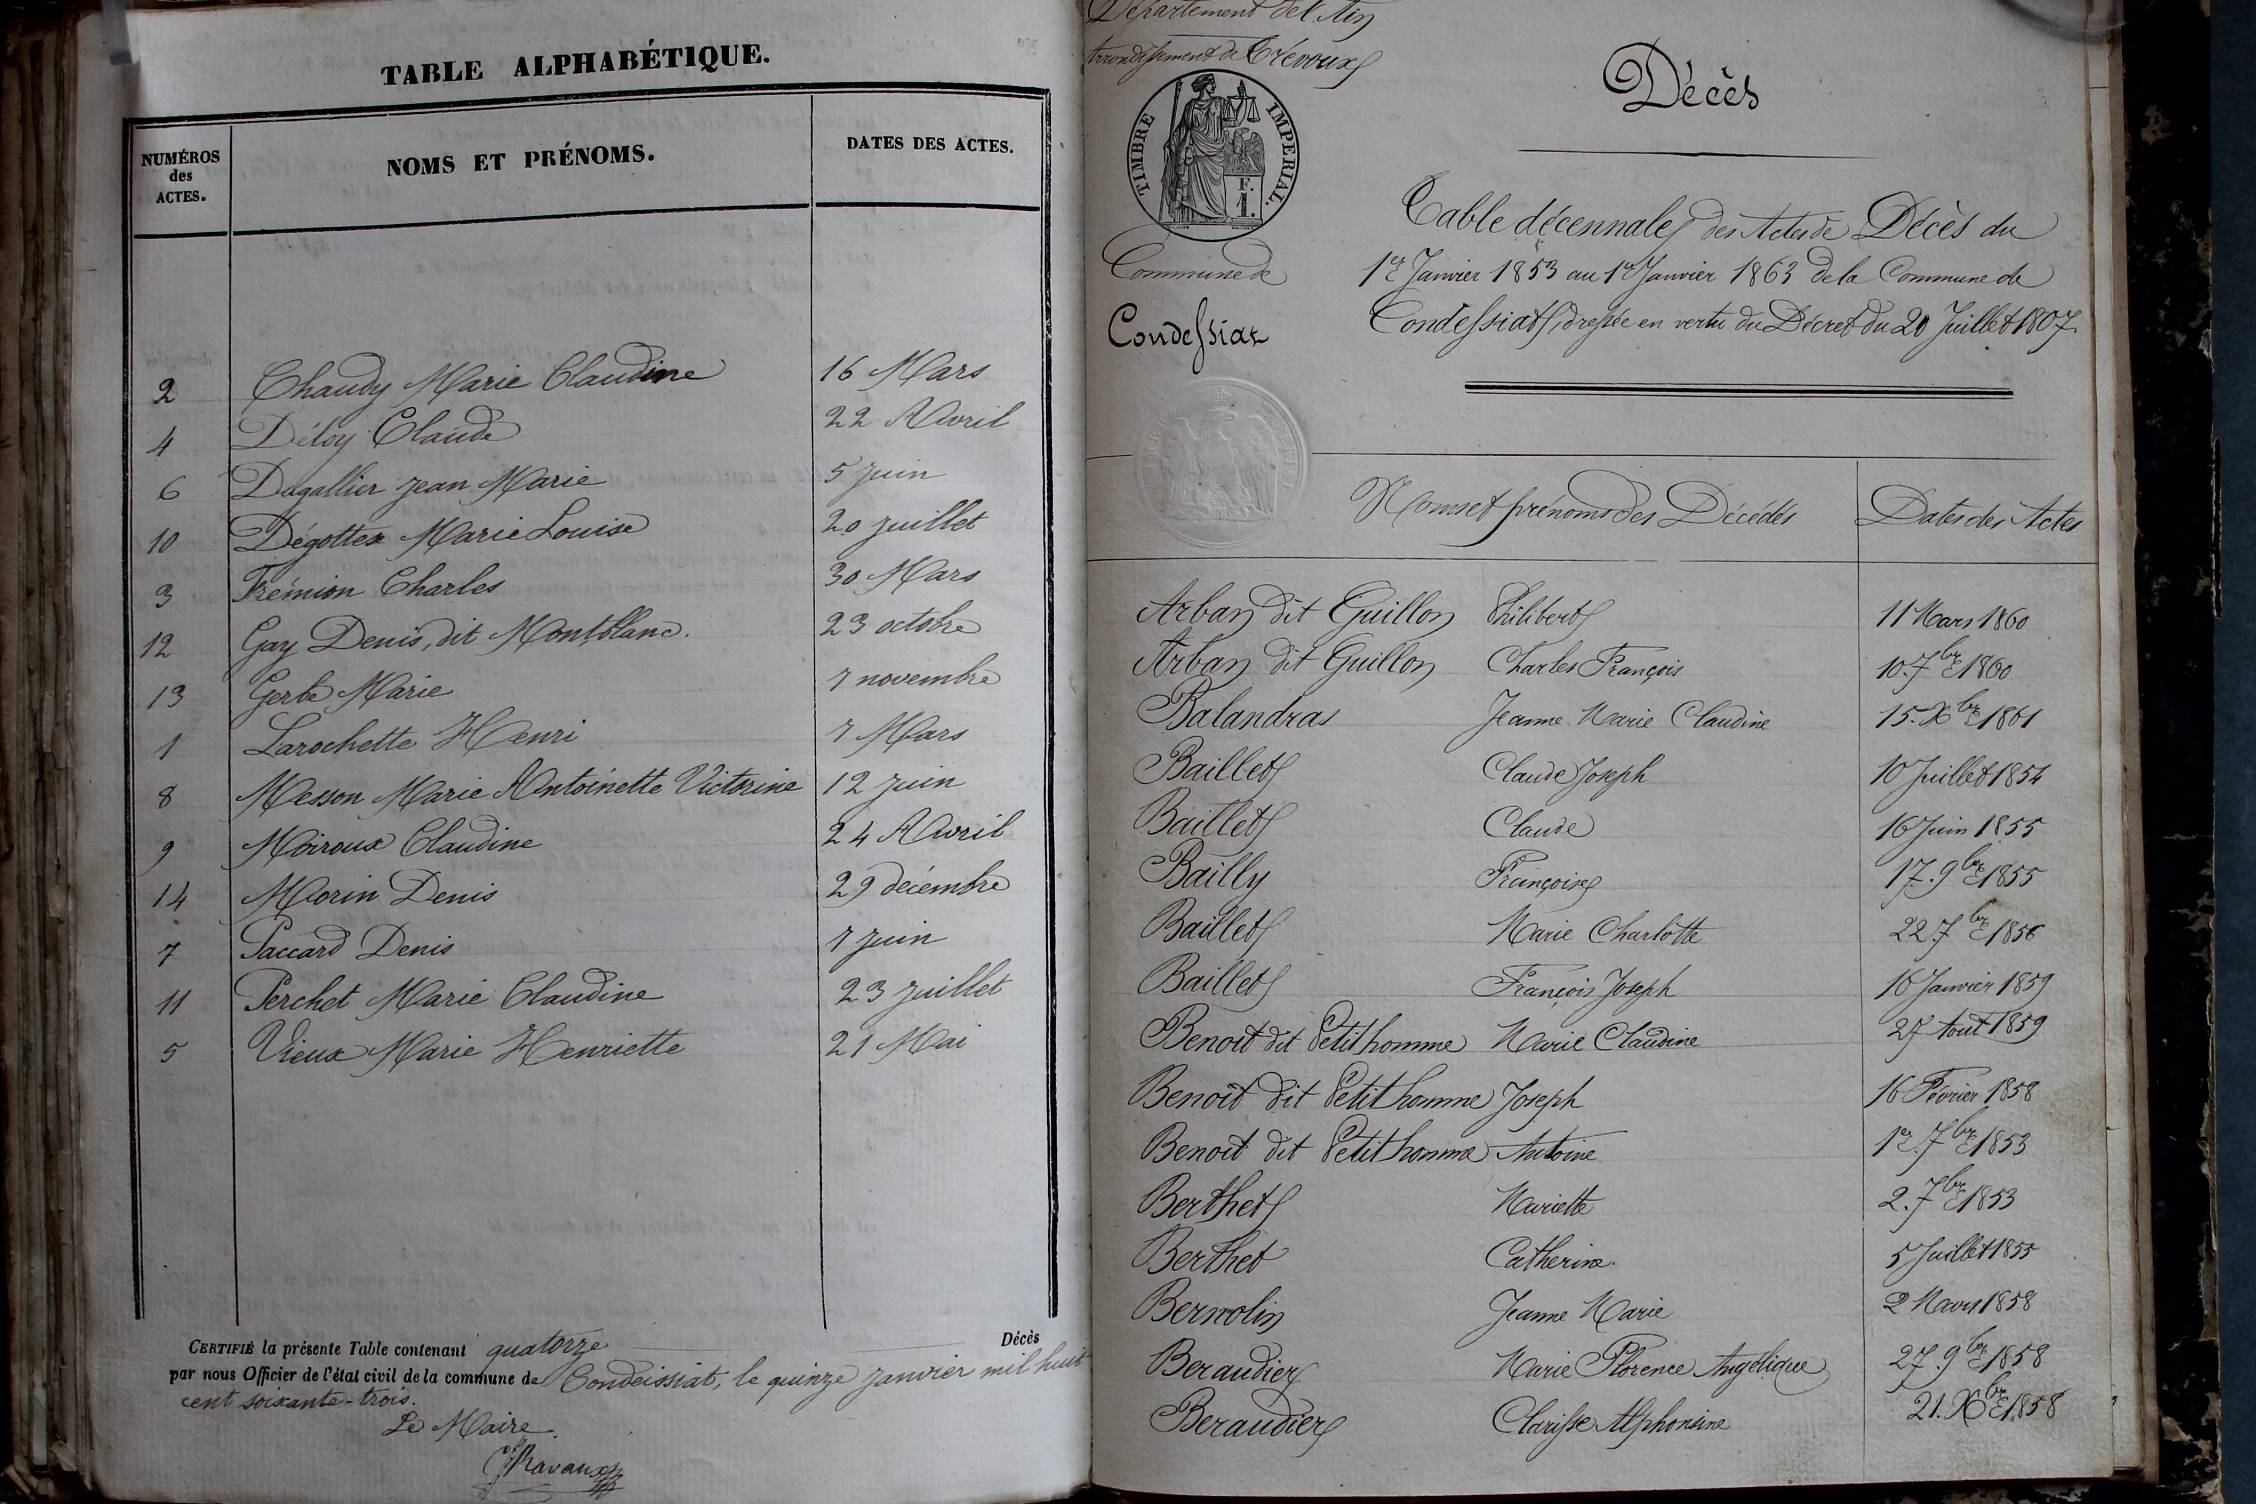 TABLE ALPHABÉTIQUE.
NUMÉROS des ACTES. NOMS ET PRÉNOMS. DATES DES ACTES.
2 Chaudy Marie Claudine 16 Mars
4 Déloy Claude 22 Avril
6 Dagallier jean Marie 5 juin
10 Dégottex Marie Louise 20 juillet
3 Frémion Charles 30 Mars
12 Gay Denis, dit Montblanc. 23 octobre
13 Gerbe Marie 7 novembre
1 Larochette Henri 7 Mars
8 Messon Marie Antoinette Victorine 12 juin
9 Moiroux Claudine 24 Avril
14 Morin Denis 29 décembre
7 Paccard Denis 7 juin
11 Perchet Marie Claudine 23 juillet
5 Vieux Marie Henriette 21 Mai
CERTIFIÉ la présente Table contenant quatorze Décès
par nous Officier de l'état civil de la commune de Condeissiat, le quinze janvier mil huit
cent soixante-trois.
Le Maire.
Département de l'Ain
Arrondissement de Trévoux
TIMBRE IMPERIAL.
F.
1.
Commune de
Condessiat
Décès
Table décennale des Actes de Décès du
1er Janvier 1853 au 1er Janvier 1863 de la Commune de
Condessiat, dressée en vertu du Décret du 20 Juillet 1807.
Noms et prénoms des Décédés Dates des Actes
Arban dit Guillon Philibert 11 Mars 1860
Arban dit Guillon Charles François 10. 7bre 1860
Balandras Jeanne Marie Claudine 15. Xbre 1861
Baillet Claude Joseph 10 Juillet 1854
Baillet Claude 16 Juin 1855
Bailly Françoise 17. 9bre 1855
Baillet Marie Charlotte 22. 7bre 1856
Baillet François Joseph 16 Janvier 1859
Benoit dit Petithomme Marie Claudine 27 Aout 1859
Benoit dit Petithomme Joseph 16 Février 1858
Benoit dit Petithomme Antoine 1er. 7bre 1853
Berthet Mariette 2. 7bre 1853
Berthet Catherine 5 Juillet 1855
Bernolin Jeanne Marie 2 Mars 1858
Beraudier Marie Florence Angélique 27. 9bre 1858
Beraudier Clarisse Alphonsine 21. Xbre 1858